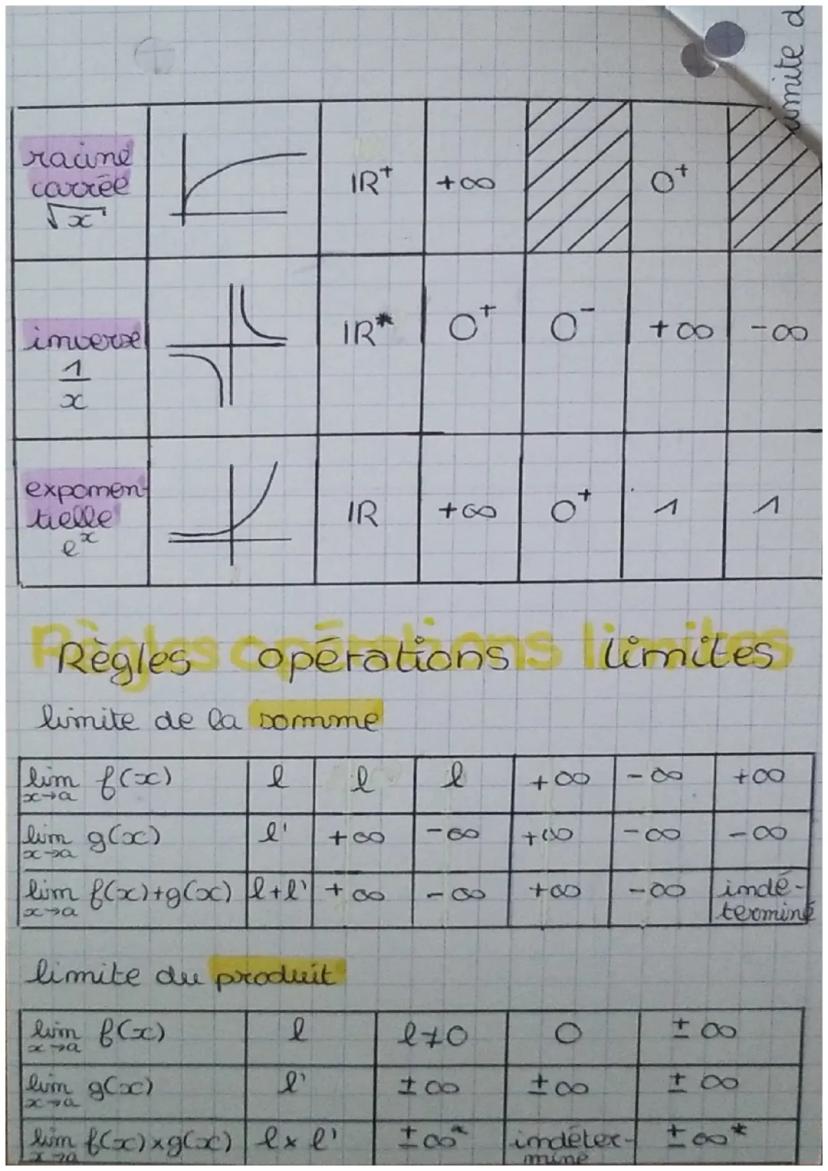 limite d
racine
carrée
√x
IR⁺ +∞ 0⁺
inverse
1/x
IR* 0⁺ 0⁻ +∞ -∞
exponen-
tielle
eˣ
IR +∞ 0⁺ 1 1
Règles opérations limites
limite de la somme
lim f(x) l l l +∞ -∞ +∞
x→a
lim g(x) l' +∞ -∞ +∞ -∞ -∞
x→a
lim f(x)+g(x) l+l' +∞ -∞ +∞ -∞ indé-
x→a terminé
limite du produit
lim f(x) l l≠0 0 ±∞
x→a
lim g(x) l' ±∞ ±∞ ±∞
x→a
lim f(x)×g(x) l×l' ±∞* indéter- ±∞*
x→a miné